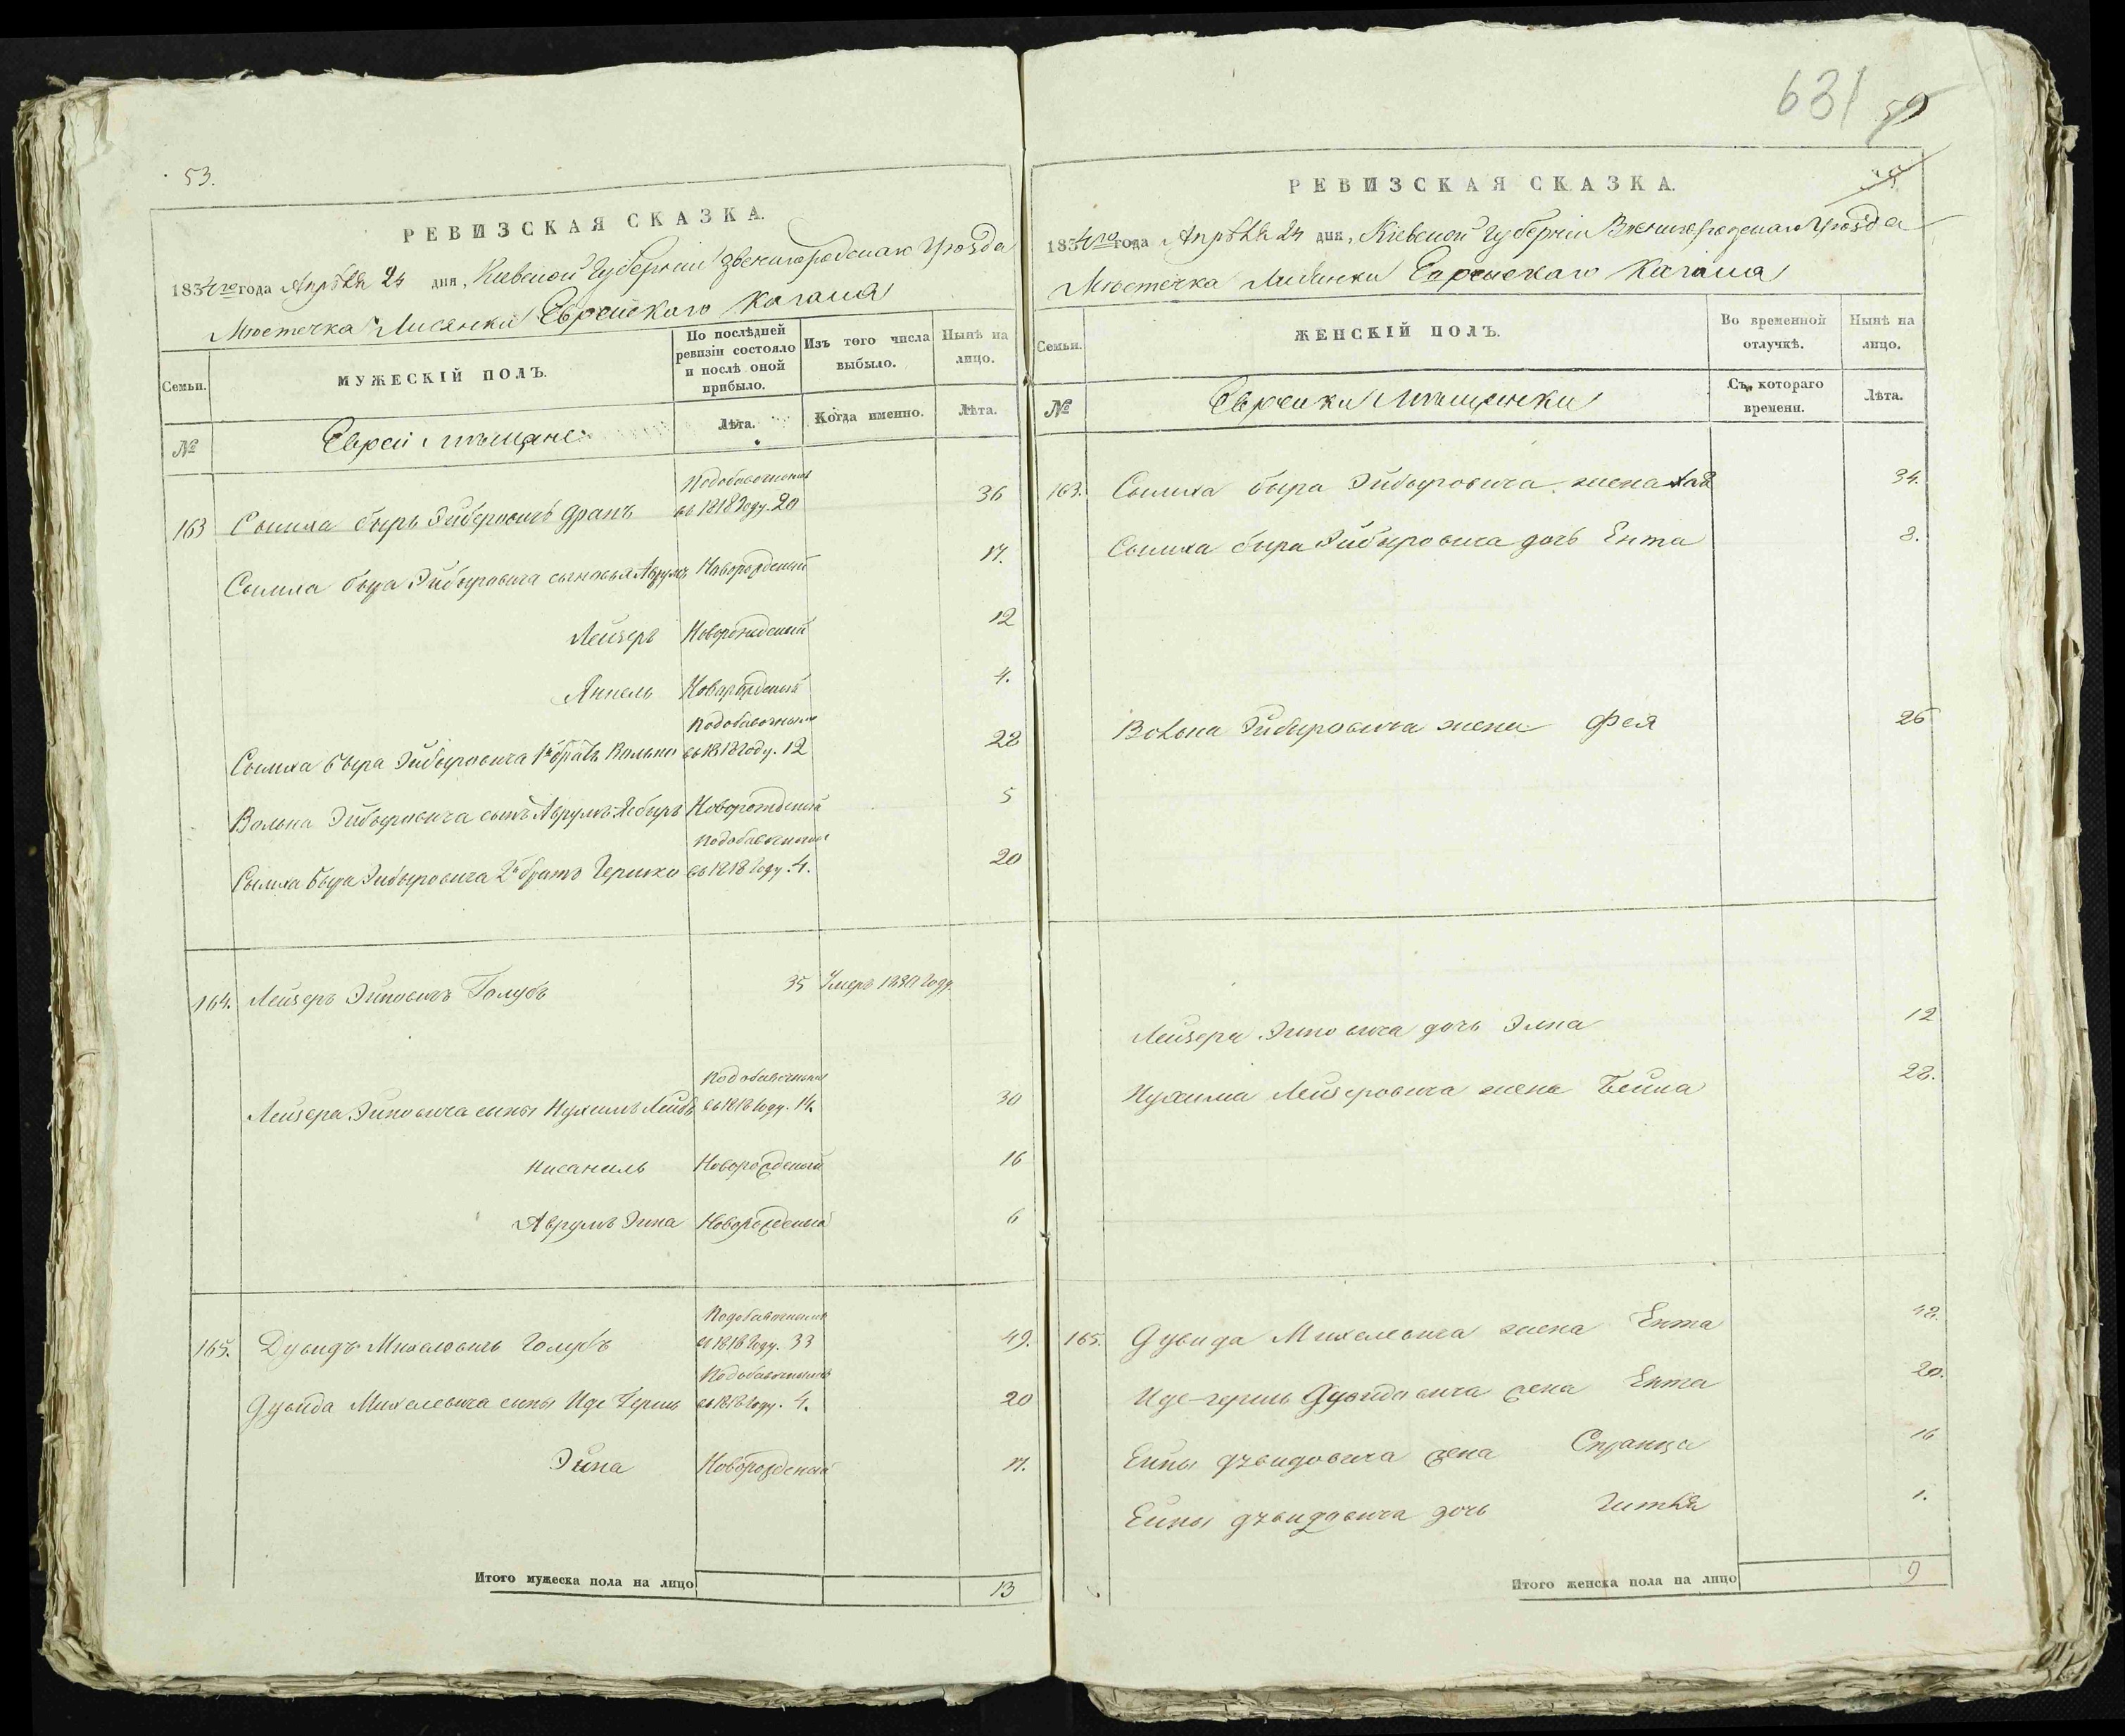 53.
РЕВИЗСКАЯ СКАЗКА.
1834го года Апрѣля 24 дня, Киевской Губерніи Звенигородскаго Уѣзда
Мѣстечка Лисянки Еврейскаго Кагала
Семьи.
МУЖЕСКІЙ ПОЛЪ.
По послѣдней ревизіи состояло и послѣ оной прибыло.
Изъ того числа выбыло.
Нынѣ на лицо.
№
Евреи мѣщане
Лѣта.
Когда именно.
Лѣта.
163 Сымха быръ Эйберовичъ
въ 1818 году. 20
36
Сымха быра Эйбыровича сыновья Аврумъ Новорожденый 17.
Лейзеръ Новорожденый 12
Янкель Новорожденый 4.
Сымха быра Эйбыровича 1й братъ Волько въ 1818 году. 12 28
Волька Эйбыровича сынъ Аврумъ Новорожденый 5
Сымха быра Эйбыровича 2й братъ Гершко въ 1818 году. 4. 20
164. Лейзеръ Эйновичъ Голубъ 35 Умеръ году.
Лейзера Эйновича сыны Нухимъ Лейбъ въ 1818 году. 14. 30
Нисанель Новорожденый 16
Аврумъ Эйна Новорожденый 6
165. Дувидъ Михелевичъ Голубъ въ 1818 году. 33 49.
Дувида Михелевича сыны Иде Гершъ въ 1818 году. 4. 20
Эйна Новорожденый 17.
Итого мужеска пола на лицо 13
631 59
РЕВИЗСКАЯ СКАЗКА.
1834го года Апрѣля 24 дня, Кіевской Губерніи Звенигородскаго Уѣзда
Мѣстечка Лисянки Еврейскаго Кагала
Семьи.
ЖЕНСКІЙ ПОЛЪ.
Во временной отлучкѣ.
Нынѣ на лицо.
№
Еврейки Мѣщанки
Съ котораго времени.
Лѣта.
163. Сымха быра Эйбыровича жена Хая 34.
Сымха быра Эйбыровича дочь Ента 8.
Волька Эйбыровича жена Фея 26
Лейзера Эйновича дочь Элка 12
Нухима Лейзеровича жена Бейла 28.
165. Дувида Михелевича жена Ента 48.
Иде-гершъ Дувидовича жена Ента 20.
Ейны Дувидовича жена Спринца 16
Ейны Дувидовича дочь Гитля 1.
Итого женска пола на лицо 9